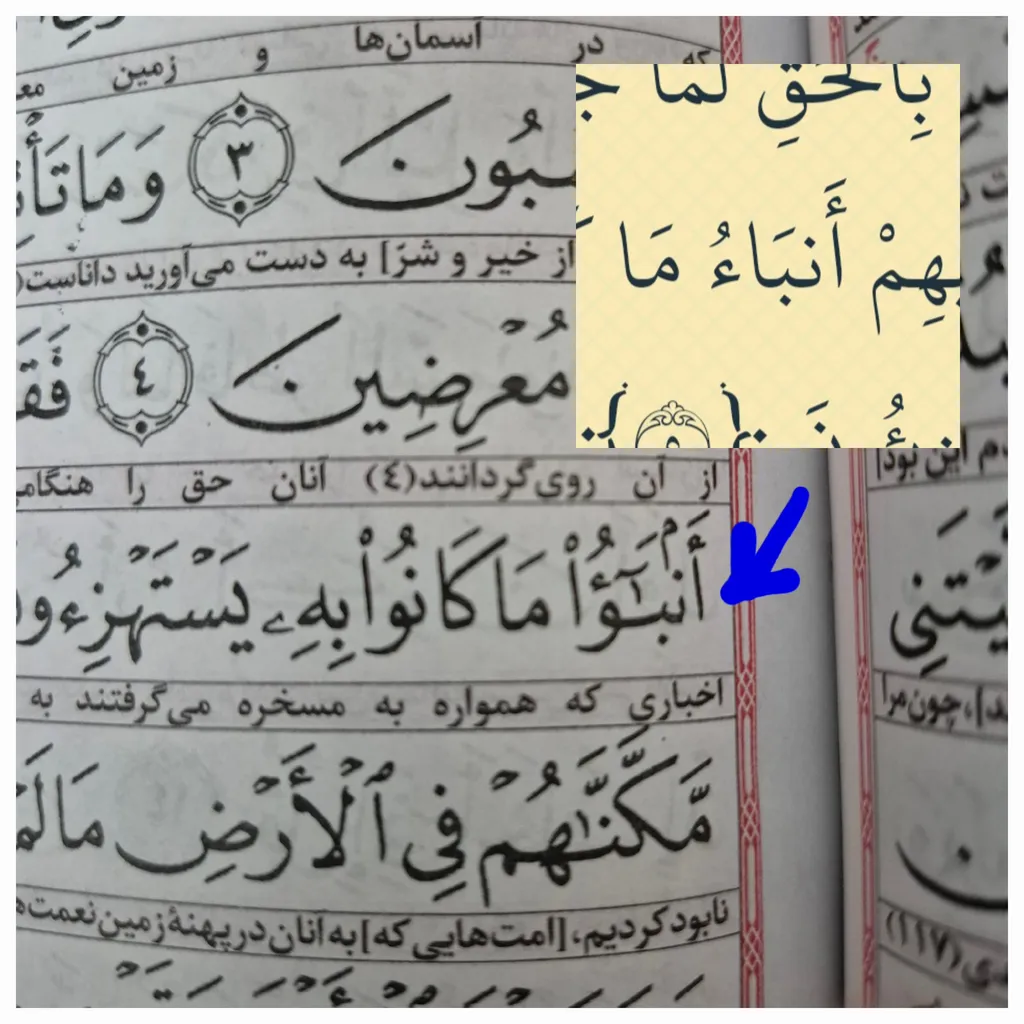 که در آسمان‌ها و زمین
ـبُونَ ٣ وَمَا تَأْ
از خیر و شرّ] به دست می‌آورید داناست(
مُعْرِضِينَ ٤ فَقَـ
از آن روی‌گردانند(٤) آنان حق را هنگامـ
أَنۢبَـٰٓؤُا۟ مَا كَانُوا۟ بِهِۦ يَسْتَهْزِءُونَ
اخباری که همواره به مسخره می‌گرفتند به
مَّكَّنَّـٰهُمْ فِى ٱلْأَرْضِ مَا لَمْ
نابود کردیم، [امت‌هایی که] به آنان در پهنهٔ زمین نعمت‌هـ
بِالْحَقِّ لَمَّا جَـ
ـيهِمْ أَنبَاءُ مَا
دم این بود]
ـيْتَنِي
ـد]، چون مرا
ـدی (١١٧)